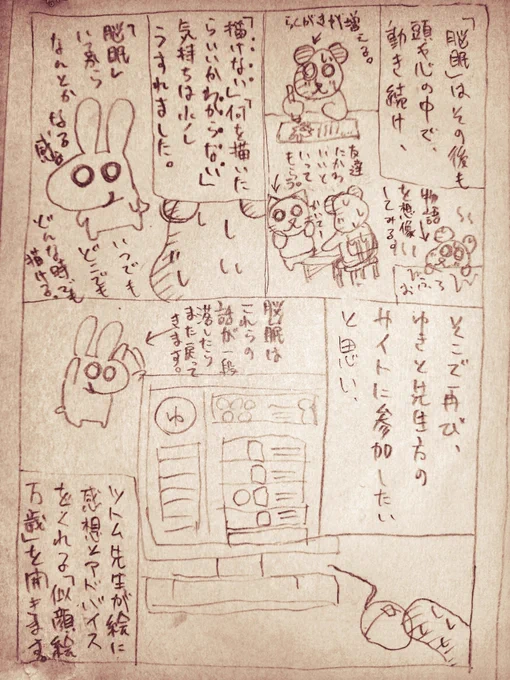 「脳眠」はその後も
頭や心の中で、
動き続け、
物語
を想像
してみる。
おふろ
らくがきが増える。
友達
たかわ
いいと
いって
もらう。
かいて
「描けない」「何を描いた
らいいかわからない」
気持ちは少し
うすれました。
しい
じし
「脳眠」
いるから
なんとかなる
感。
いつでも
どこでも
どんな時でも
描ける。
そこで再び、
ゆきと先生方の
サイトに参加したい
と思い、
脳眠は
これらの
話が一段
落したら
また戻って
きます。
ゆ
ツトム先生が絵に
感想とアドバイス
をくれる「似顔絵
万歳」を開きます。